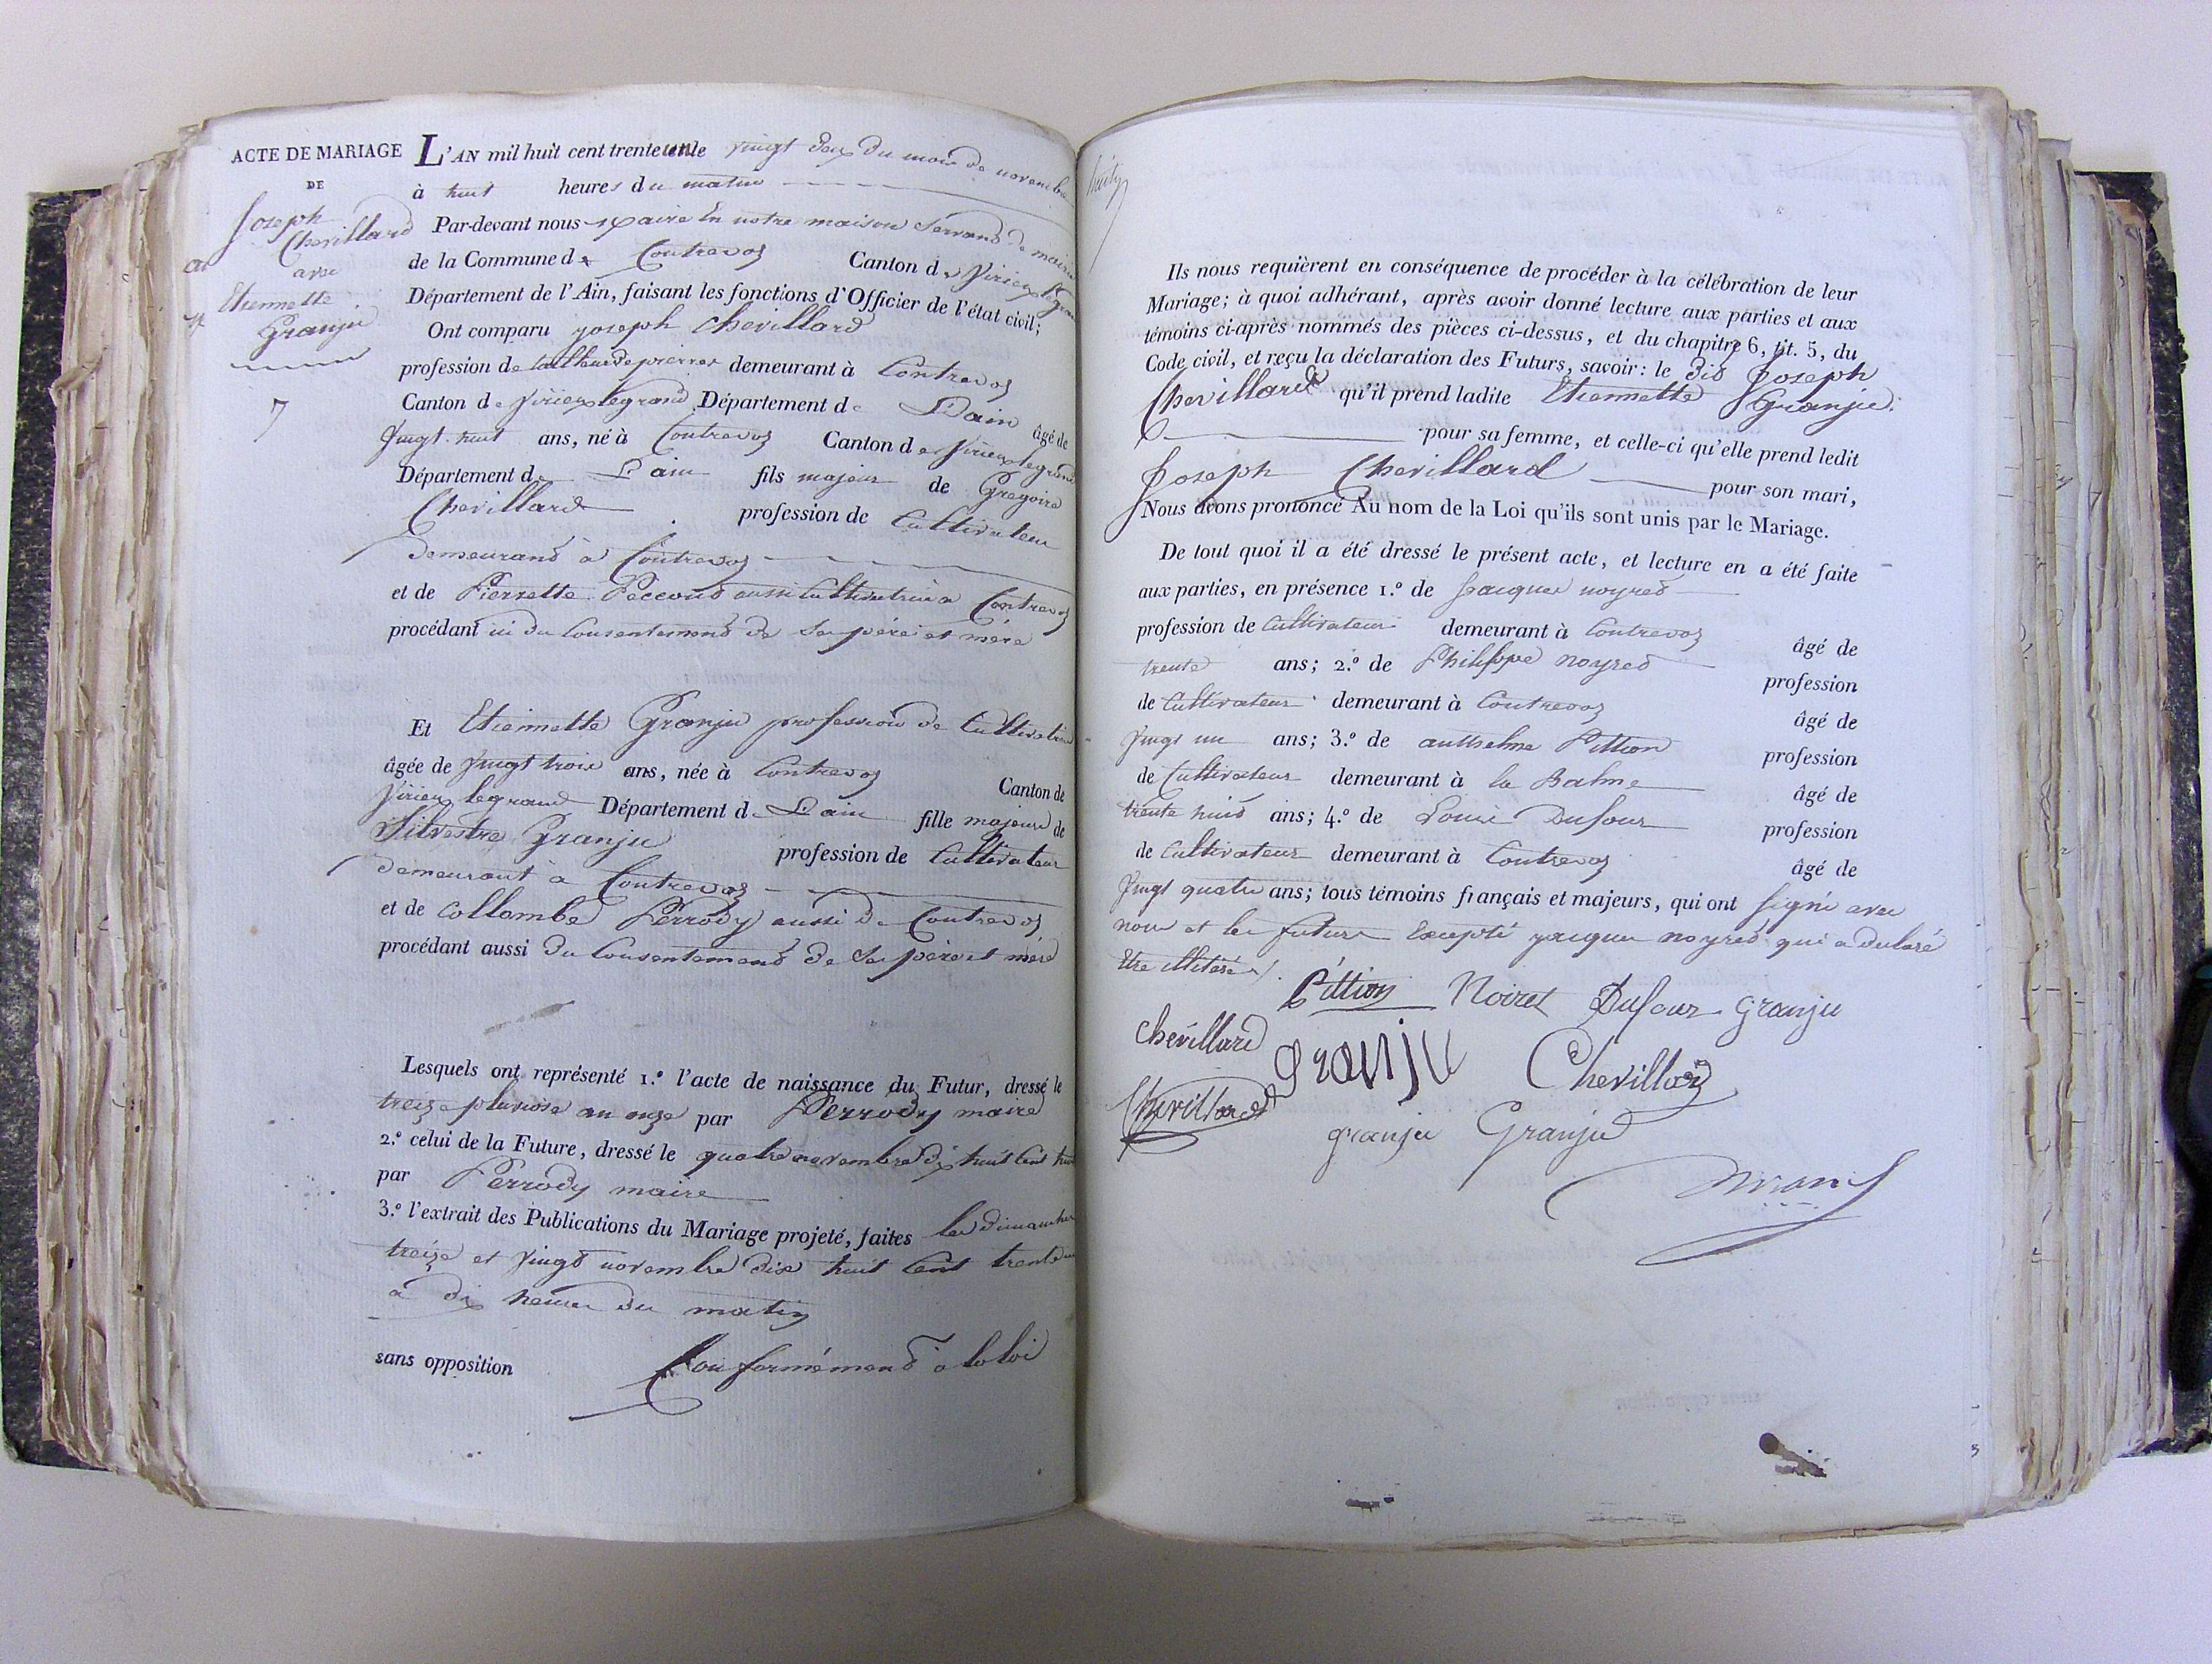 ACTE DE MARIAGE
DE
Joseph
Chevillard
avec
Etiennette
Granju
7
L'AN mil huit cent trente un le vingt deux du mois de novembre
à huit heures du matin
Par-devant nous maire En notre maison Servand de mairie
de la Commune de Contrevoz Canton de Virieu legrand
Département de l'Ain, faisant les fonctions d'Officier de l'état civil;
Ont comparu joseph chevillard
profession de tailleur de pierres demeurant à Contrevoz
Canton de Virieu legrand Département de L'ain âgé de
Vingt huit ans, né à Contrevoz Canton de Virieu legrand
Département de L'ain fils majeur de Gregoire
Chevillard profession de Cultivateur
demeurand à Contrevoz
et de Pierrette Peccoud aussi Cultivatrice a Contrevoz
procédant ici du Consentemend de Ses père et mère
Et Etiennette Granju profession de Cultivatrice
âgée de Vingt trois ans, née à Contrevoz Canton de
Virieu legrand Département de L'ain fille majeure de
Silvestre Granju profession de Cultivateur
demeurant à Contrevoz
et de Collombe Perrody aussi de Contrevoz
procédant aussi du Consentemend de Ses père et mère
Lesquels ont représenté 1.º l'acte de naissance du Futur, dressé le
treize pluviose an onze par Perrody maire
2.º celui de la Future, dressé le quatre novembre dix huit Cent huit
par Perrody maire
3.º l'extrait des Publications du Mariage projeté, faites les dimanches
treize et Vingt novembre dix huit Cent trente un
a dix heures du matin
sans opposition Conformémend a la loi
Ils nous requièrent en conséquence de procéder à la célébration de leur
Mariage; à quoi adhérant, après avoir donné lecture aux parties et aux
témoins ci-après nommés des pièces ci-dessus, et du chapitre 6, tit. 5, du
Code civil, et reçu la déclaration des Futurs, savoir: le did Joseph
Chevillard qu'il prend ladite Etiennette Granju
pour sa femme, et celle-ci qu'elle prend ledit
Joseph Chevillard pour son mari,
Nous avons prononcé Au nom de la Loi qu'ils sont unis par le Mariage.
De tout quoi il a été dressé le présent acte, et lecture en a été faite
aux parties, en présence 1.º de Jacques noyred
profession de Cultivateur demeurant à Contrevoz âgé de
trente ans; 2.º de Philippe noyred profession
de Cultivateur demeurant à Contrevoz âgé de
Vingt un ans; 3.º de authelme Pittion profession
de Cultivateur demeurant à la Balme âgé de
trente huid ans; 4.º de Louis Dufour profession
de Cultivateur demeurant à Contrevoz âgé de
Vingt quatre ans; tous témoins français et majeurs, qui ont Signé avec
nous et les futurs Excepté jacques noyred qui a déclaré
Etre illitéré
Pittion Noiret Dufour Granju
chevillard Granju Chevillard
Chevillard granju Granju